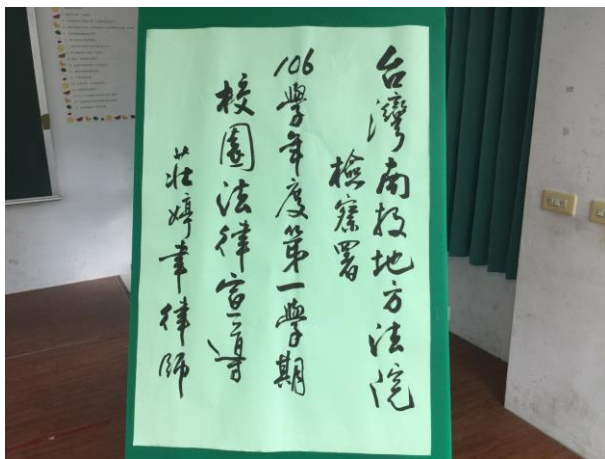 台灣南投地方法院
檢察署
106學年度第一學期
校園法律宣導
莊婷聿律師